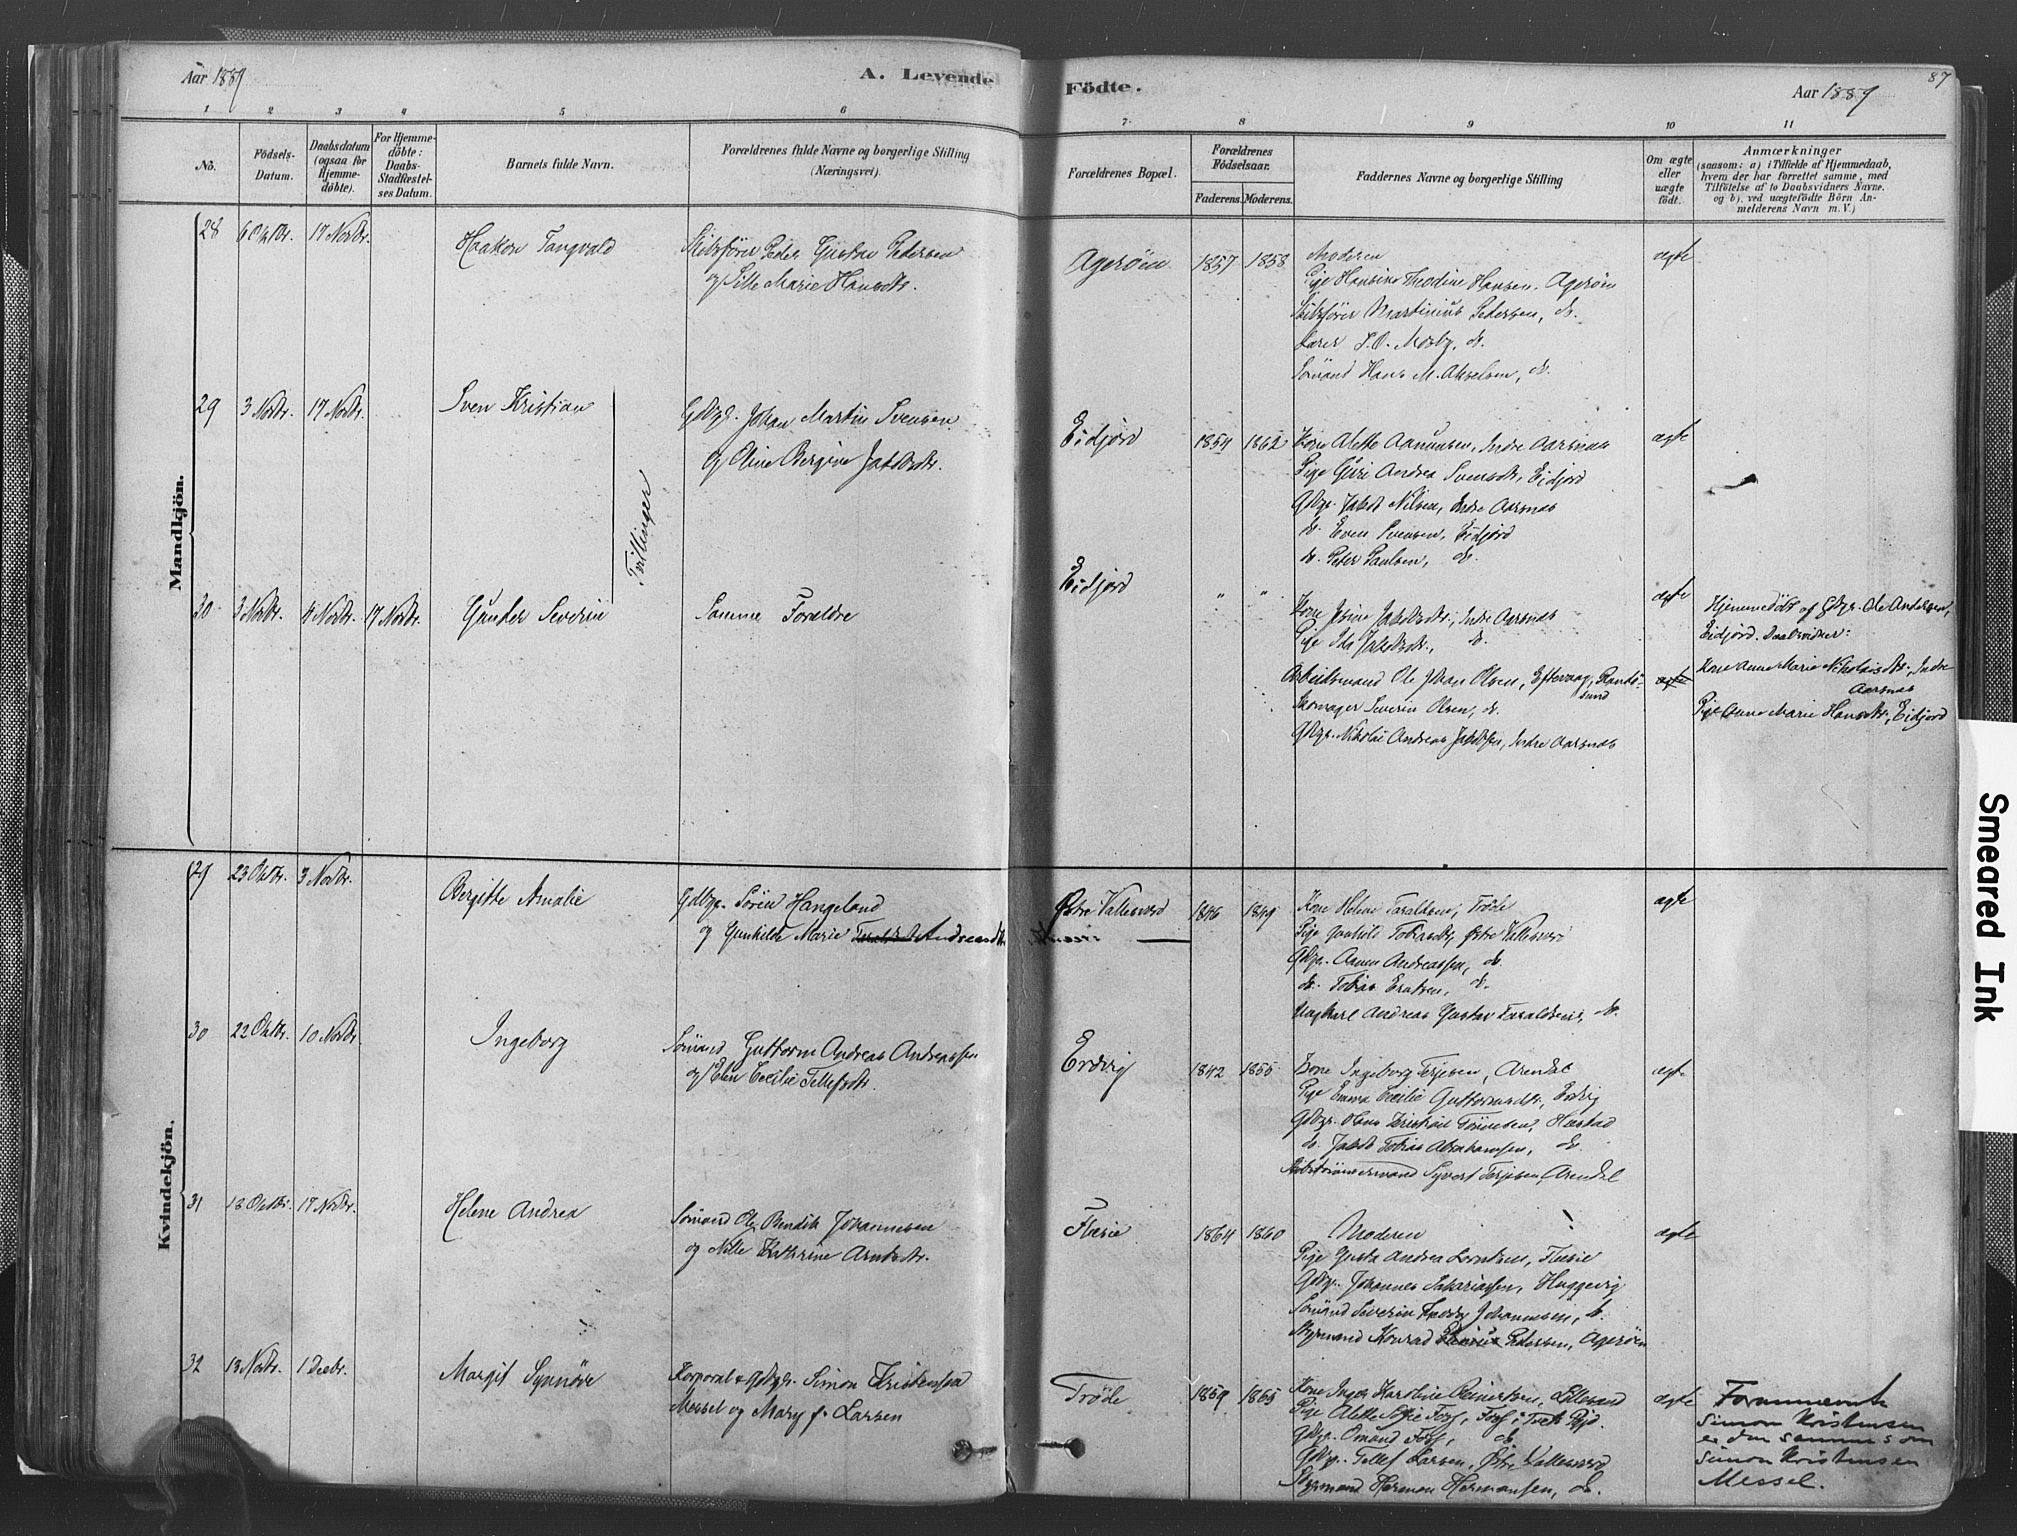 Aar 1889
A. Levende
Födte.
Aar 1889
87
1 2 3 4 5 6 7 8 9 10 11
No.
Födsels-Datum.
Daabsdatum (ogsaa for Hjemme-döbte).
For Hjemme-döbte: Daabs-Stadfæstel-ses Datum.
Barnets fulde Navn.
Forældrenes fulde Navne og borgerlige Stilling (Næringsvei).
Forældrenes Bopæl.
Forældrenes Födselsaar.
Faderens. Moderens.
Faddernes Navne og borgerlige Stilling
Om ægte eller uægte födt.
Anmærkninger
(saasom: a) i Tilfælde af Hjemmedaab,
hvem der har forrettet samme, med
Tilföielse af to Daabsvidners Navne.
og b). ved uægtefödte Börn An-
melderens Navn m. V.)
Mandkjön.
28 6 Oktbr. 17 Novbr. Haakon Tangvald
Skibsförer Peder Gustav Pedersen
og Sille Marie Hansdtr.
Ageröen 1857 1858
Moderen
Pige Hansine Theodine Hansen. Ageröen
Skibsförer Martinius Pedersen, do.
Lærer S. O. Mosby, do.
Sömand Hans M. Akselsen, do.
ægte
29 3 Novbr. 17 Novbr. Sven Kristian
Tvillinger
Gdbgr. Johan Martin Svensen
og Oline Bergine Jakobsdtr.
Eidjord 1854 1862
Kone Alette Aanunsen, Indre Aarsnæs
Pige Guri Andrea Svensdtr, Eidjord
Gdbgr. Jakob Nilsen, Indre Aarsnæs
do. Even Svensen, Eidjord
do. Peter Paulsen, do.
ægte
30 3 Novbr. 4 Novbr. 17 Novbr. Gunder Severin
Samme Forældre
Eidjord " "
Kone Jakobsdtr., Indre Aarsnæs
Pige Ida Jakobsdtr., do.
Arbeidsmand Ole Johan Olsen, Eftevaag, Randö-
sund
Skomager Severin Olsen, do.
Gdbgr. Nikolai Andreas Jakobsen, Indre Aarsnæs
ægte
ægte
Hjemmedöbt af Gdbgr. Ole Andersen,
Eidjord. Daabsvidner:
Kone Anne Marie Nikolaisdtr., Indre
Aarsnæs
Pige Anne Marie Hansdtr., Eidjord
Kvindekjön.
29 23 Oktbr. 3 Novbr. Bergitte Amalie
Gdbgr. Sören Hangeland
og Gunhilde Marie Andreasdtr.
Östre Vallesværd 1846 1849
Kone Helene Taraldsen, Tröde
Pige Gunhild Tobiasdtr, Östre Vallesværd
Gdbgr. Aanen Andreassen, do.
do. Tobias Knutsen, do.
Ungkarl Andreas Gustav Taraldsen, do.
ægte
30 22 Oktbr. 10 Novbr. Ingeborg
Sömand Guttorm Andreas Andreassen
og Elen Cecilie Tellefsdtr.
Erdvig 1842 1855
Kone Ingeborg Terjesen, Arendal
Pige Emma Cecilie Guttormsdtr., Erdvig
Gdbgr. Hans Kristian Tönnesen, Hæstad
do. Jakob Tobias Abrahamsen, do.
Skibstömmermand Syvert Terjesen, Arendal
ægte
31 18 Oktbr. 17 Novbr. Helene Andrea
Sömand Ole Bendik Johannesen
og Nille Kathrine Arntsdtr.
Flæsie 1864 1860
Moderen
Pige Gusta Andrea Berntsen, Flæsie
Gdbgr. Johannes Sakariassen, Huggevig
Sömand Severin Johannesen, do.
Styrmand Konrad Pedersen, Ageröen
ægte
32 13 Novbr. 1 Decbr. Margit Synnöve
Korporal & Gdbgr. Simon Kristensen
Messel og Mary f. Larsen
Tröde 1859 1865
Kone Inger Karoline Reinertsen, Lillesand
Pige Alette Sofie Foss, Foss i Tveit Pgd.
Gdbgr. Omund Foss, do.
Gdbgr. Tellef Larsen, Östre Vallesværd
Styrmand Herman Hermansen, do.
ægte
Forannævnte
Simon Kristensen
er den samme som
Simon Kristensen
Messel.
Smeared Ink